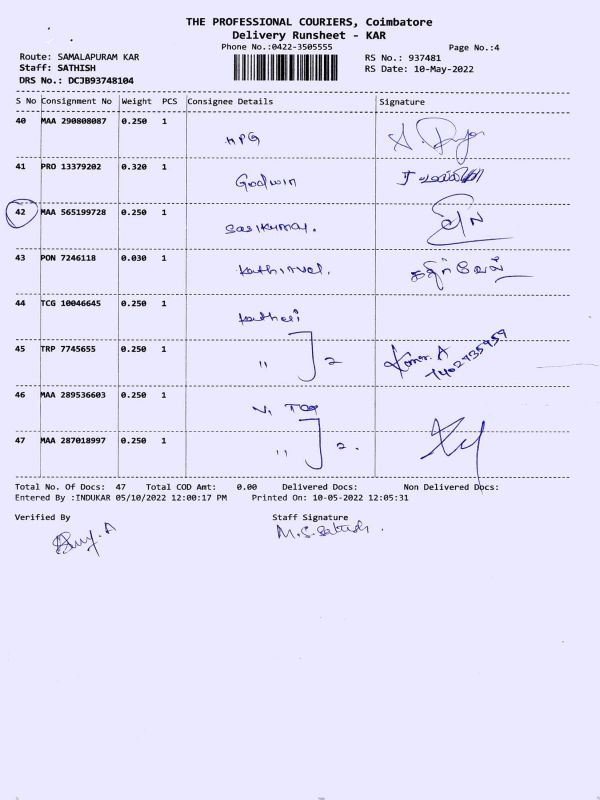 THE PROFESSIONAL COURIERS, Coimbatore
Delivery Runsheet - KAR
Phone No.:0422-3505555
Page No.:4
Route: SAMALAPURAM KAR
RS No.: 937481
Staff: SATHISH
RS Date: 10-May-2022
DRS No.: DCJB93748104
S No Consignment No Weight PCS Consignee Details Signature
40 MAA 290808087 0.250 1
HPG
41 PRO 13379202 0.320 1
Goodwin
42 MAA 565199728 0.250 1
Sasikumar.
43 PON 7246118 0.030 1
Kathirvel. கதிர்வேல்
44 TCG 10046645 0.250 1
45 TRP 7745655 0.250 1
" 2
46 MAA 289536603 0.250 1
47 MAA 287018997 0.250 1
" 2.
Total No. Of Docs: 47 Total COD Amt: 0.00 Delivered Docs: Non Delivered Docs:
Entered By :INDUKAR 05/10/2022 12:00:17 PM Printed On: 10-05-2022 12:05:31
Verified By Staff Signature
M.S.Sathish.